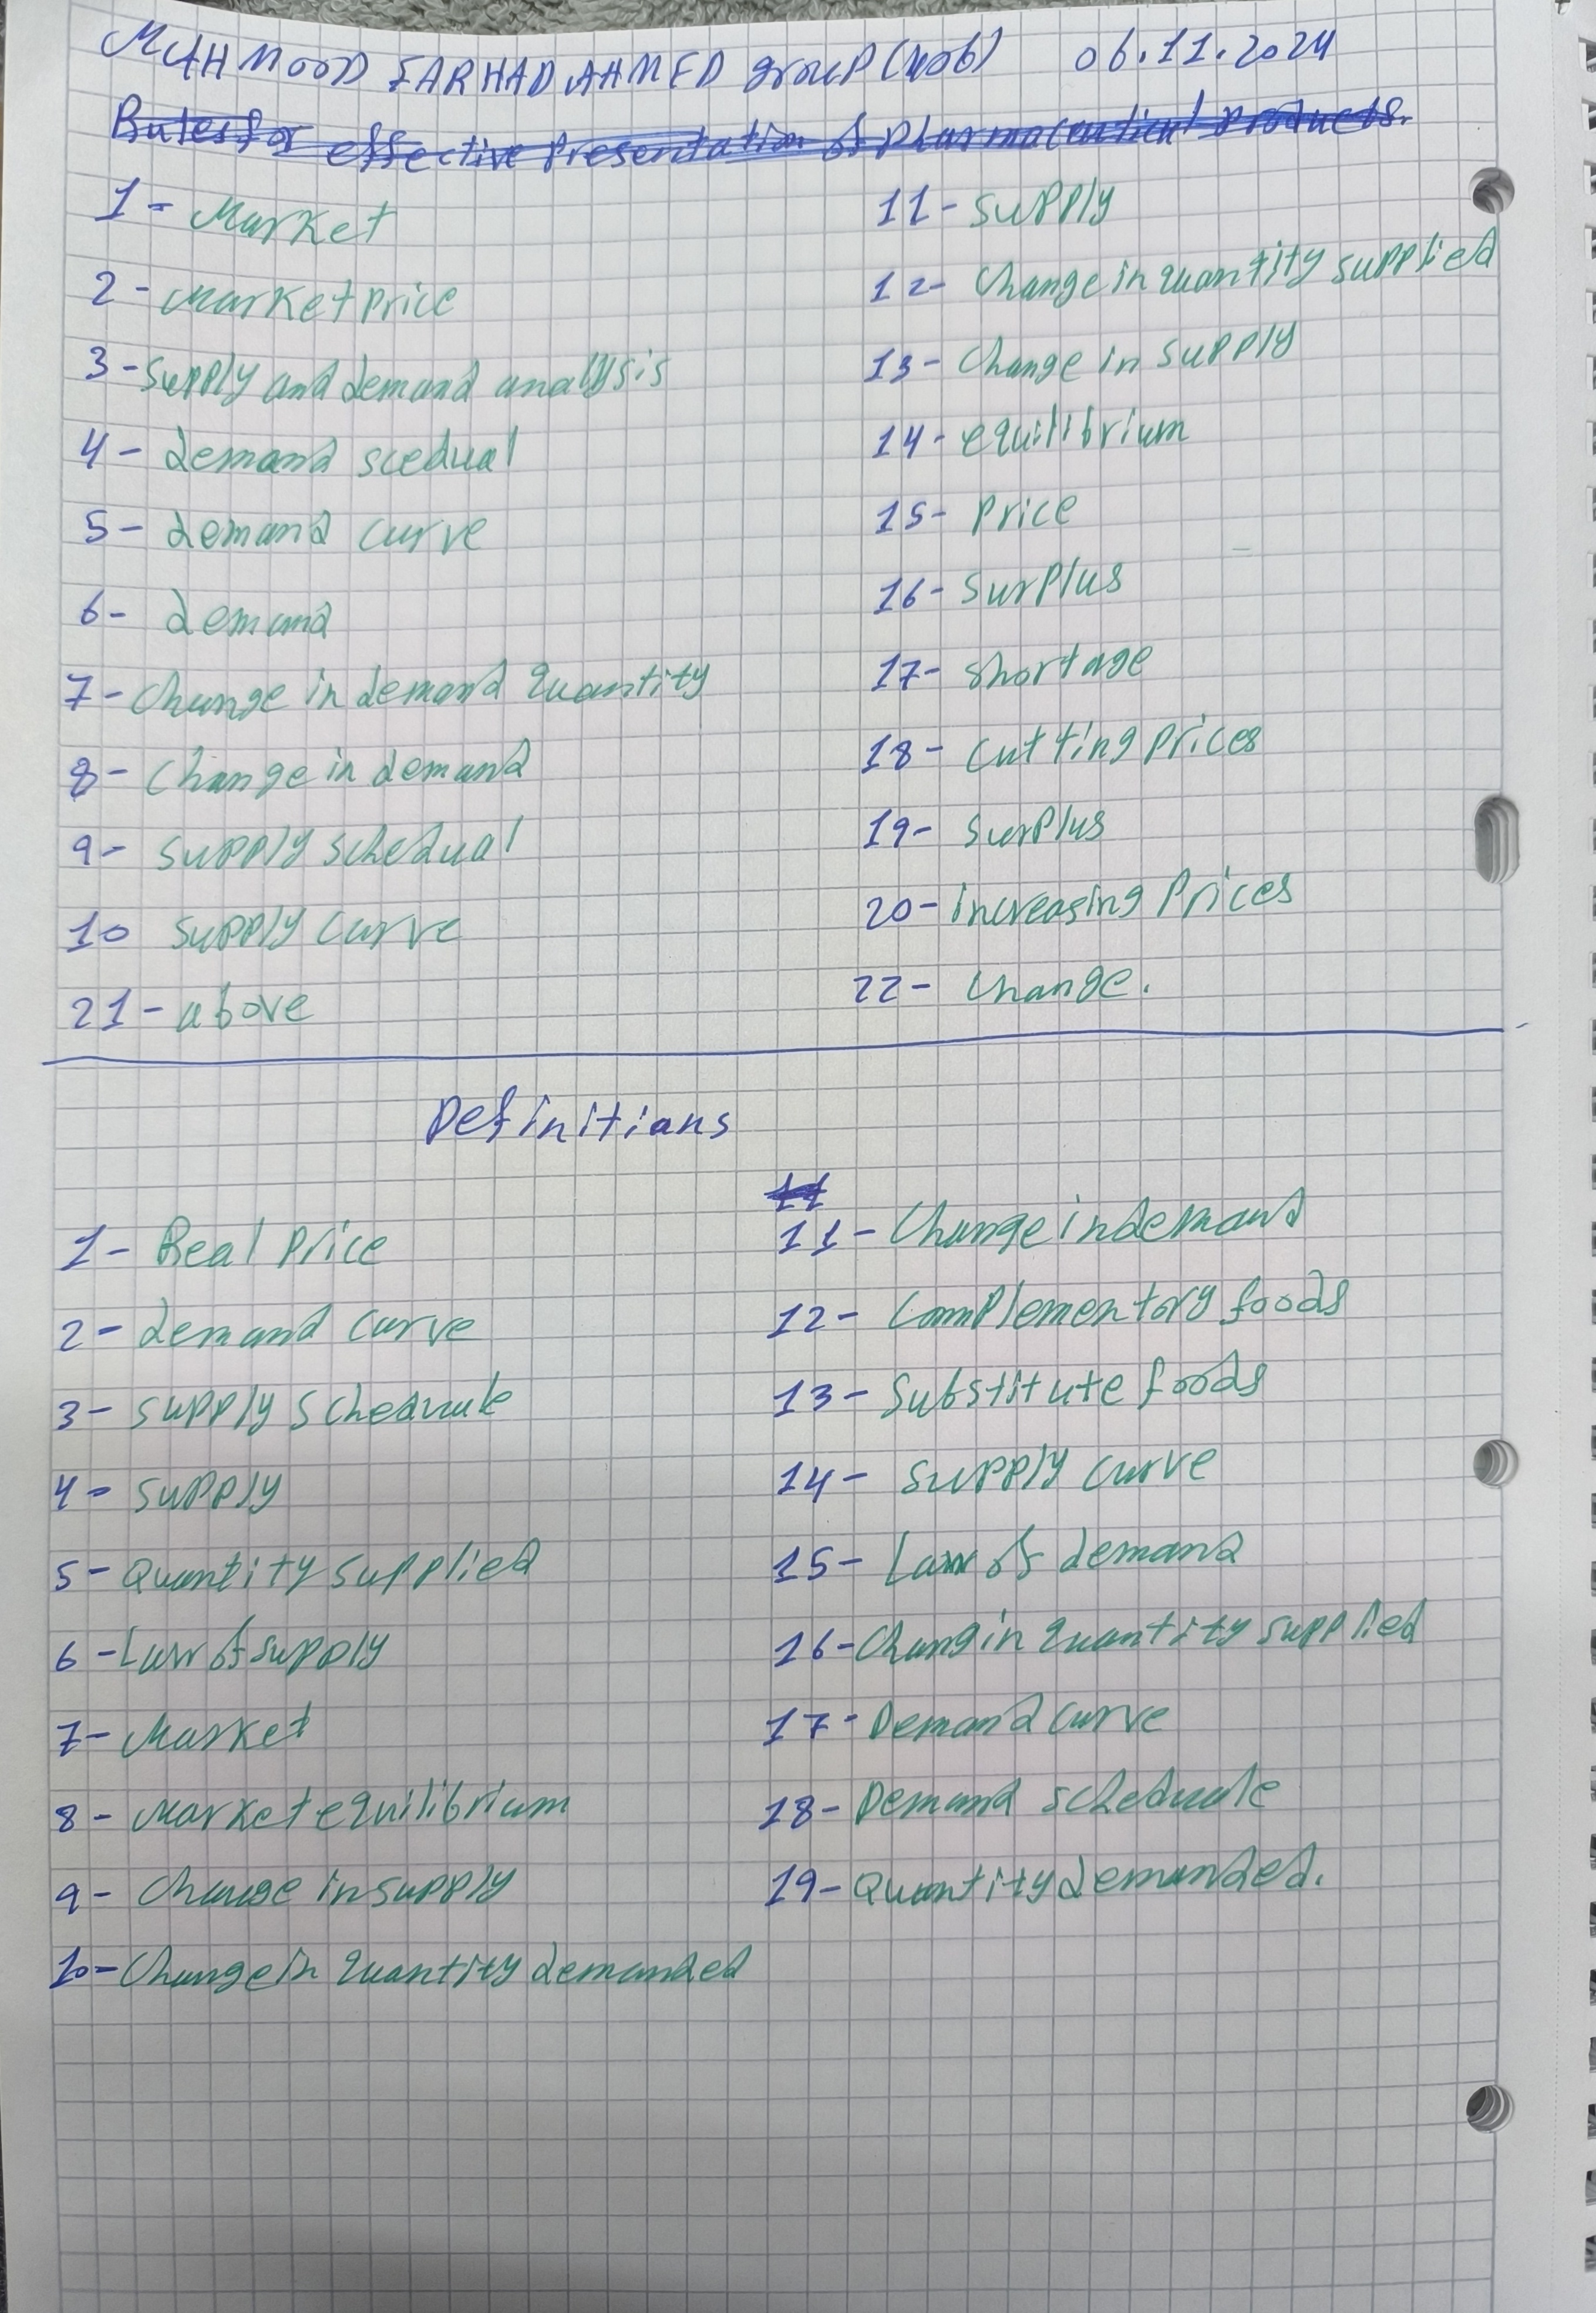 MAHMOOD FARHAD AHMED group (406) 06.11.2024
Rules for effective Presentation of Pharmaceutical Products.
1- Market
2- Market price
3- Supply and demand analysis
4- demand scedual
5- demand curve
6- demand
7- Change in demand quantity
8- Change in demand
9- supply schedual
10 supply curve
21- above
11- supply
12- Change in quantity supplied
13- Change in supply
14- equilibrium
15- Price
16- Surplus
17- Shortage
18- cutting prices
19- Surplus
20- increasing Prices
22- Change.
Definitians
1- Real Price
2- demand curve
3- supply schedule
4- supply
5- Quantity supplied
6- Law of supply
7- Market
8- Market equilibrium
9- Change in supply
10- Change in quantity demanded
11
11- Change in demand
12- Complementory foods
13- Substitute foods
14- supply curve
15- Law of demand
16- Chang in quantity supplied
17- Demand curve
18- Demand schedule
19- Quantity demanded.